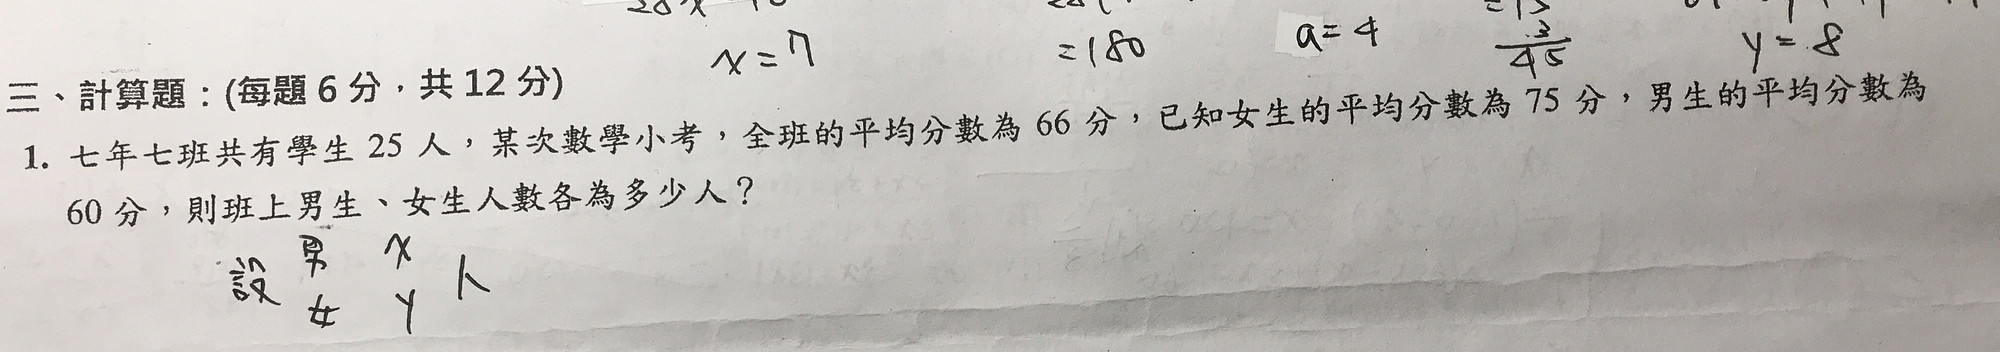 x=7
=180
a=4
3
45
y=8
三、計算題：(每題 6 分，共 12 分)
1. 七年七班共有學生 25 人，某次數學小考，全班的平均分數為 66 分，已知女生的平均分數為 75 分，男生的平均分數為
60 分，則班上男生、女生人數各為多少人？
設 男 x 人
女 y